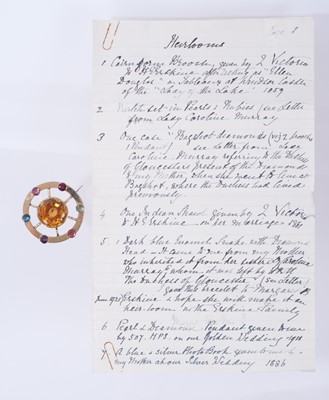 Heirlooms
1 Cairngorm Brooch given by Q Victoria
to H. Erskine after acting as "Ellen
Douglas" in Tableaux at Windsor Castle
of the "Lady of the Lake" 1859
2 set in Pearls & Rubies (see Letter
from Lady Caroline Murray
3 One case "Bagshot diamonds (viz) 2 brooches
1 Pendant) see Letter from Lady
Caroline Murray referring to the Duchess
of Gloucester present of the Diamonds
to my Mother, when she went to live at
Bagshot, where the Duchess had lived
previously
4 One Indian Shawl given by Q Victoria
to H Erskine on her marriage 1861
5 1 Dark blue Enamel Snake with Diamond
Head – It came to me from my Mother
who inherited it from her sister Caroline
Murray to whom it was left by HRH
The Duchess of Gloucester (see Letter)
I gave this bracelet to Margaret
Erskine & hope she will make it an
heirloom in the Erskine Family
6 Pearl & Diamond Pendant given to me
by on our Golden Wedding 1911
7 A blue & silver Photo Book given to me by
my Mother at our Silver Wedding 1886